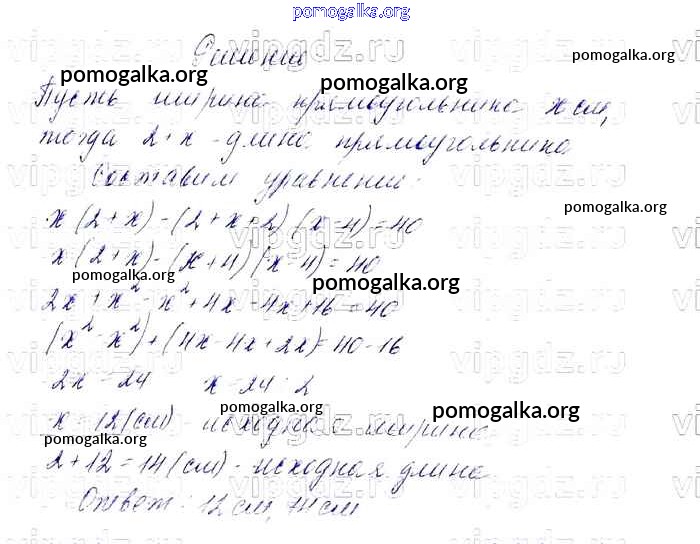 pomogalka.org
Решение
pomogalka.org pomogalka.org pomogalka.org
Пусть ширина прямоугольника x см,
тогда 2+x - длина прямоугольника
Составим уравнение:
pomogalka.org
x(2+x)-(2+x+2)(x-4)=40
x(2+x)-(x+4)(x-4)=40
pomogalka.org pomogalka.org
2x+x²-x²+4x-4x+16=40
(x²-x²)+(4x-4x+2x)=40-16
2x=24 x=24:2
pomogalka.org pomogalka.org
x=12(см) - исходная ширина
pomogalka.org
2+12=14(см) - исходная длина
Ответ: 12 см, 14 см
vipgdz.ru